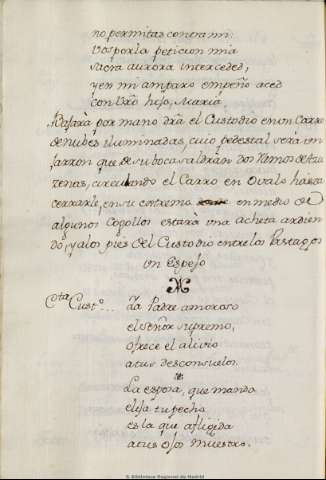 no permitas contra mi:
Vos por la peticion mia
sacra aurora interceded,
y en mi amparo empeño aced
con Vro hijo, Maria.
por mano dra el Custodio en on Carro
de nubes iluminadas, cuio pedestal será vn
jarron que de su boca saldrán dos Ramos de Azu
zenas, circulando el Carro en Ovalo hasta
cerrarle, en su extremo en medio de
algunos Cogollos estará una acheta ardien
do, y a los pies del Custodio entre los
vn Espejo
Cota Cust.º... Ya Padre amoroso
el señor supremo,
ofrece el alivio
a tus desconsuelos.
La espera, que manda
elija tu pecho
es la que afligida
a tus ojos muestro.
© Biblioteca Regional de Madrid